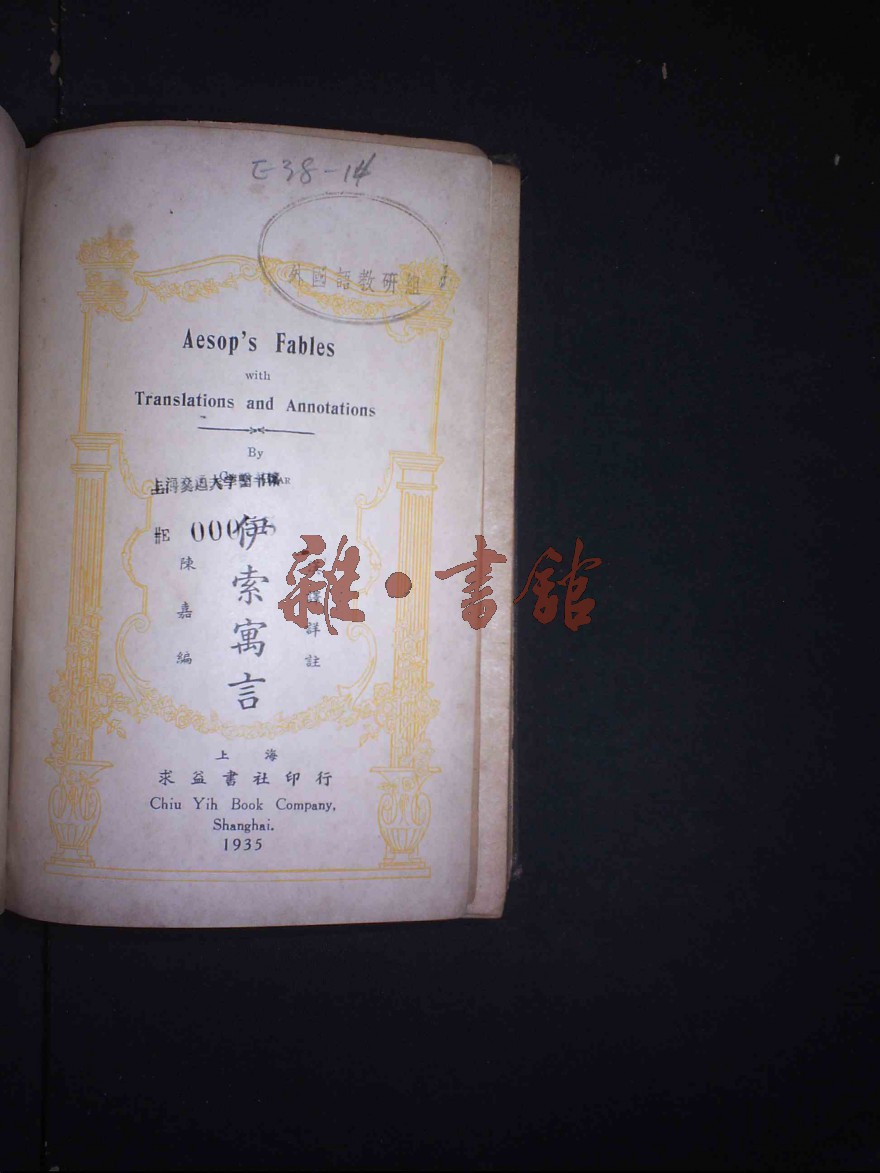 E38-14
外國語教研組
Aesop's Fables
with
Translations and Annotations
By
上海交通大学圖书館
000
伊索寓言
詳註
陳嘉編
雜·書館
上海
求益書社印行
Chiu Yih Book Company,
Shanghai.
1935